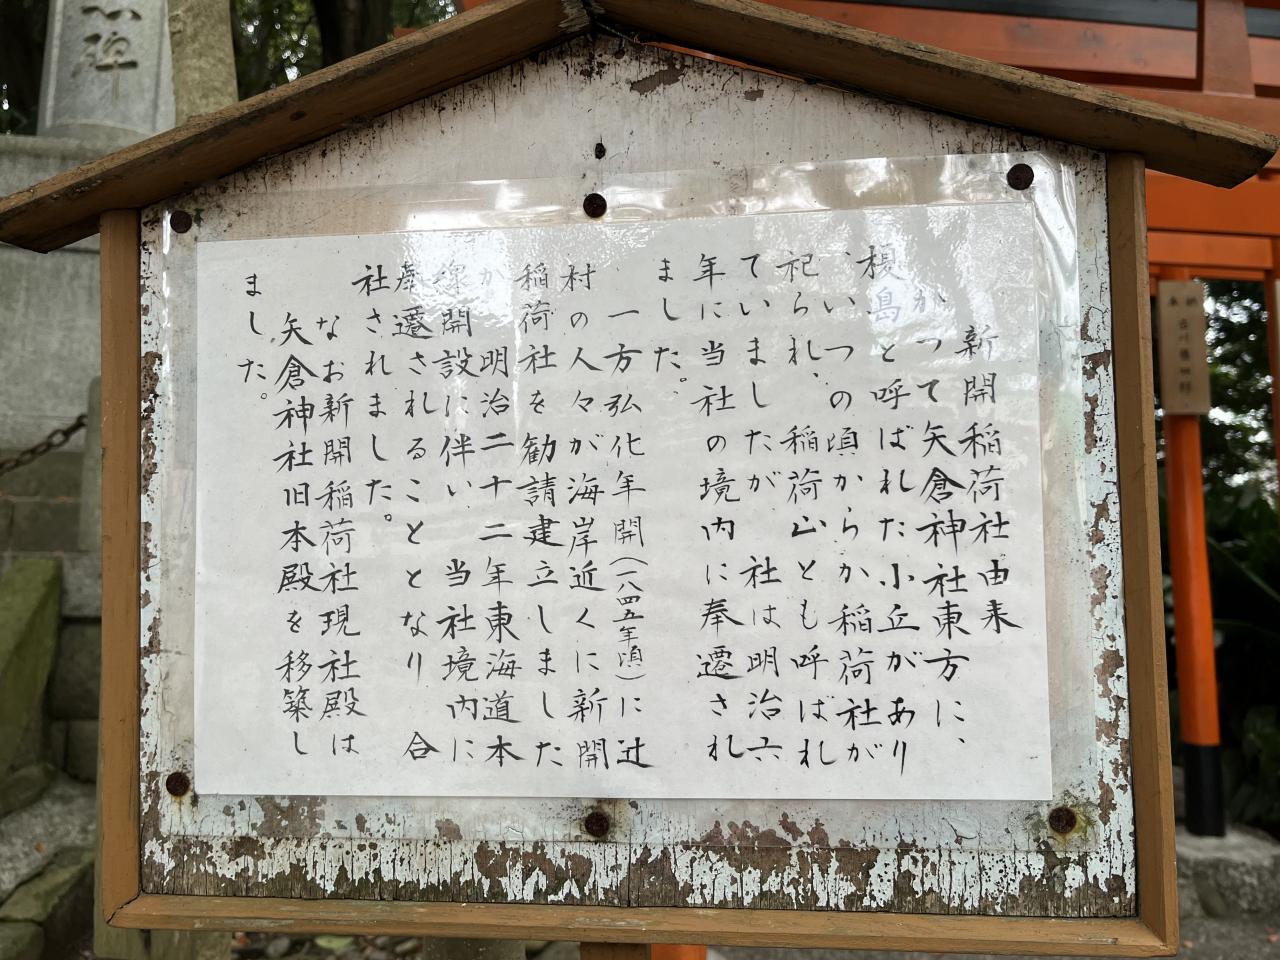 新開稲荷社由来
かつて矢倉神社東方に、
榎島と呼ばれた小丘があり
、いつの頃からか稲荷社が
祀られ、稲荷山とも呼ばれ
ていましたが 社は明治六
年に当社の境内に奉遷され
ました。
一方弘化年開(一八四五年頃)に辻
村の人々が海岸近くに新開
稲荷社を勧請建立しました
が 明治二十二年東海道本
線開設に伴い 当社境内に
奉遷されることとなり 合
社されました。
なお新開稲荷社現社殿は
矢倉神社旧本殿を移築し
ました。
碑